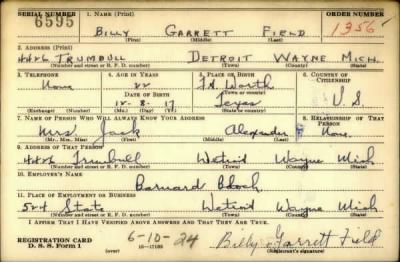 SERIAL NUMBER 1. NAME (Print) ORDER NUMBER
6595 BILLY GARRETT FIELD 1356
(First) (Middle) (Last)
2. ADDRESS (Print)
4426 TRUMBULL DETROIT WAYNE MICH.
(Number and street or R. F. D. number) (Town) (County) (State)
3. TELEPHONE 4. AGE IN YEARS 5. PLACE OF BIRTH 6. COUNTRY OF CITIZENSHIP
None 22 Ft. Worth
DATE OF BIRTH (Town or county)
12-8-17 Texas U.S.
(Exchange) (Number) (Mo.) (Day) (Yr.) (State or country)
7. NAME OF PERSON WHO WILL ALWAYS KNOW YOUR ADDRESS 8. RELATIONSHIP OF THAT PERSON
Mrs. Jack Alexander None.
(Mr., Mrs., Miss) (First) (Middle) (Last)
9. ADDRESS OF THAT PERSON
4426 Trumbull Detroit Wayne Mich
(Number and street or R. F. D. number) (Town) (County) (State)
10. EMPLOYER'S NAME
Barnard
11. PLACE OF EMPLOYMENT OR BUSINESS
524 State Detroit Wayne Mich
(Number and street or R. F. D. number) (Town) (County) (State)
I AFFIRM THAT I HAVE VERIFIED ABOVE ANSWERS AND THAT THEY ARE TRUE.
REGISTRATION CARD
D. S. S. Form 1 (over) 16-17105 6-10-24 Billy Garrett Field
(Registrant's signature)